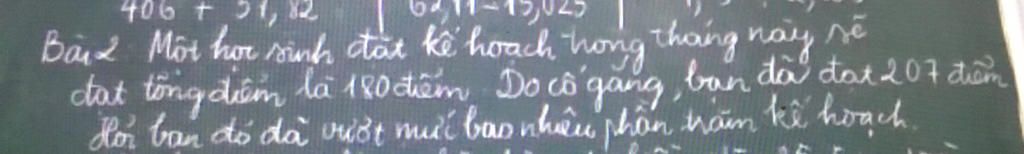 406 + 51,82
Bài 2 Một học sinh đặt kế hoạch trong tháng này sẽ
đạt tổng điểm là 180 điểm Do cố gắng, bạn đã đạt 207 điểm
Hỏi bạn đó đã vượt mức bao nhiêu phần trăm kế hoạch.